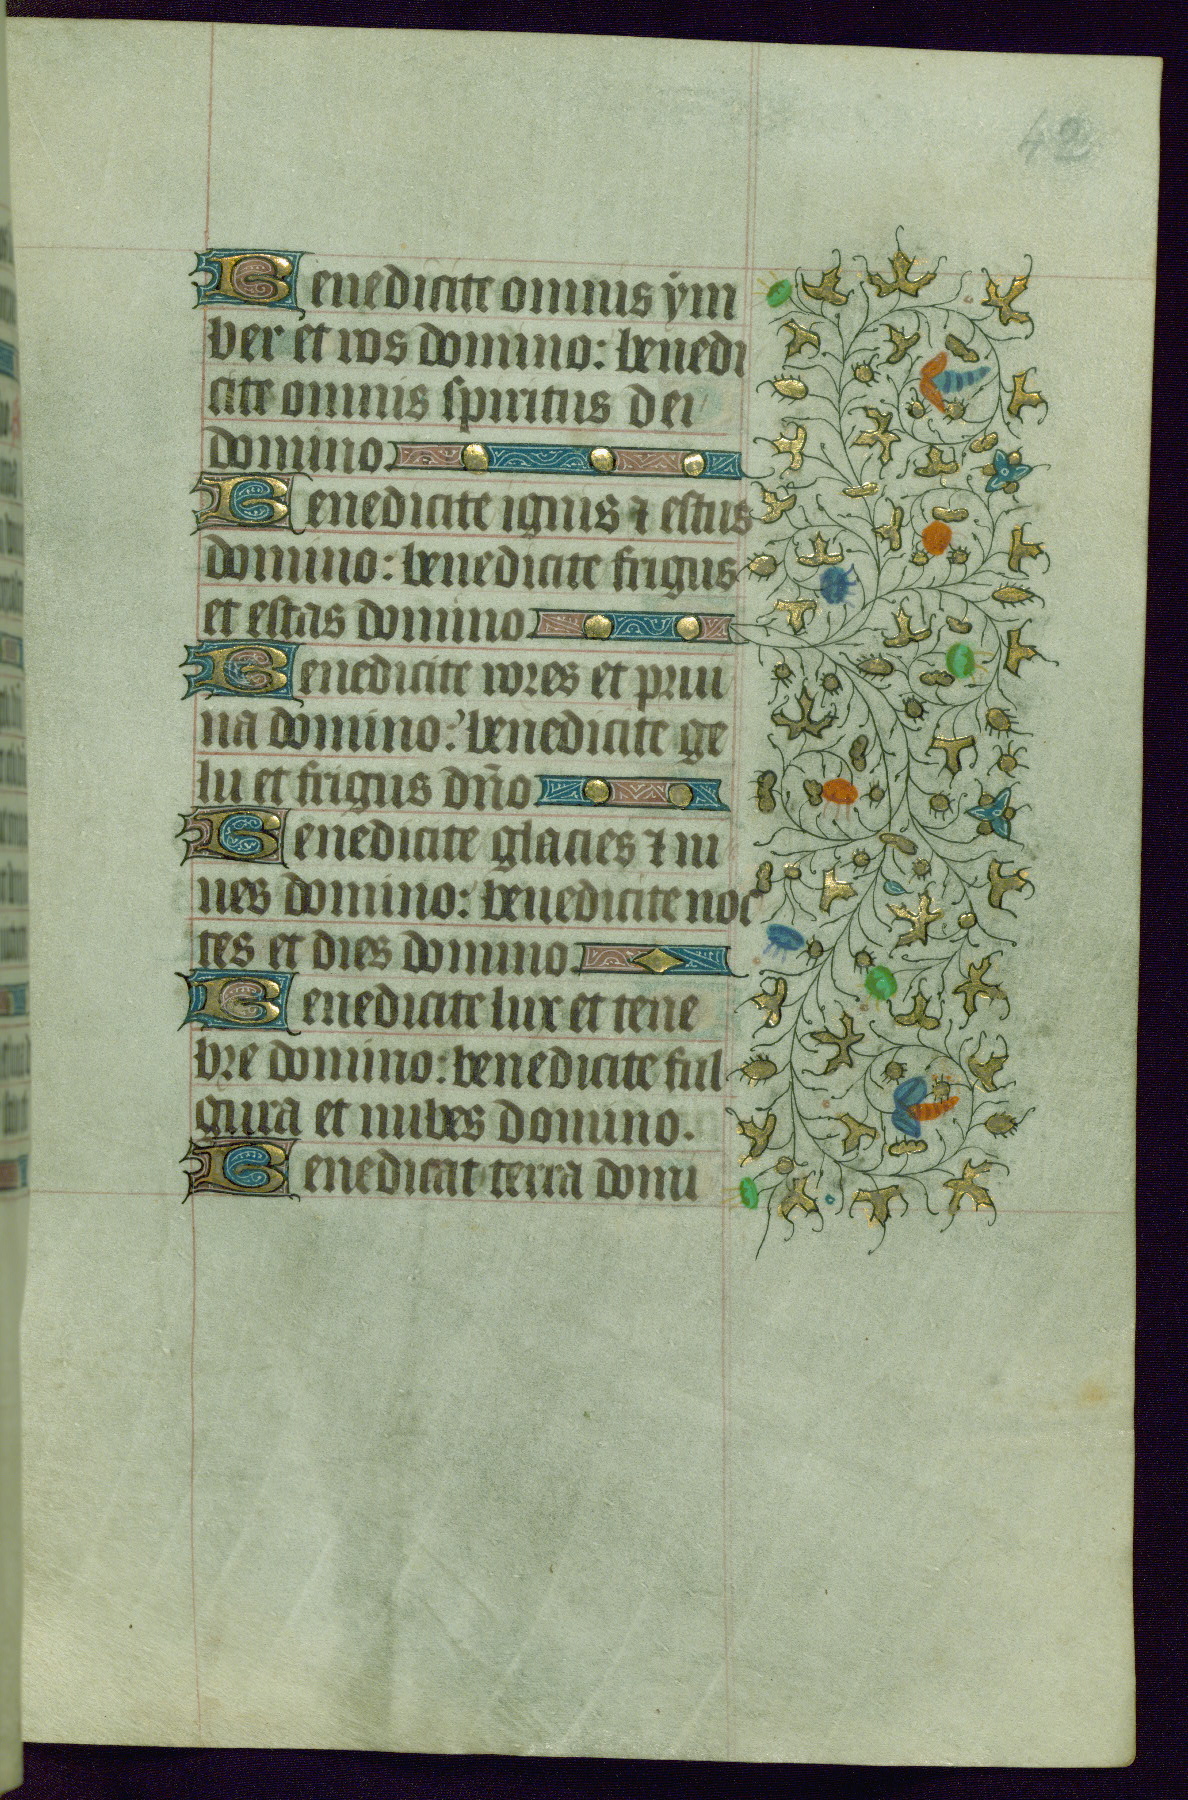 42
Benedicite omnis ym
ber et ros domino: benedi
cite omnis spiritus dei
domino
Benedicite ignis ⁊ estus
domino: benedicite frigus
et estas domino
Benedicite rores et prui
na domino: benedicite ge
lu et frigus dn̄o
Benedicite glacies ⁊ ni
ues domino: benedicite noc
tes et dies domino.
Benedicite lux et tene
bre domino: benedicite ful
gura et nubes domino.
Benedicat terra domi